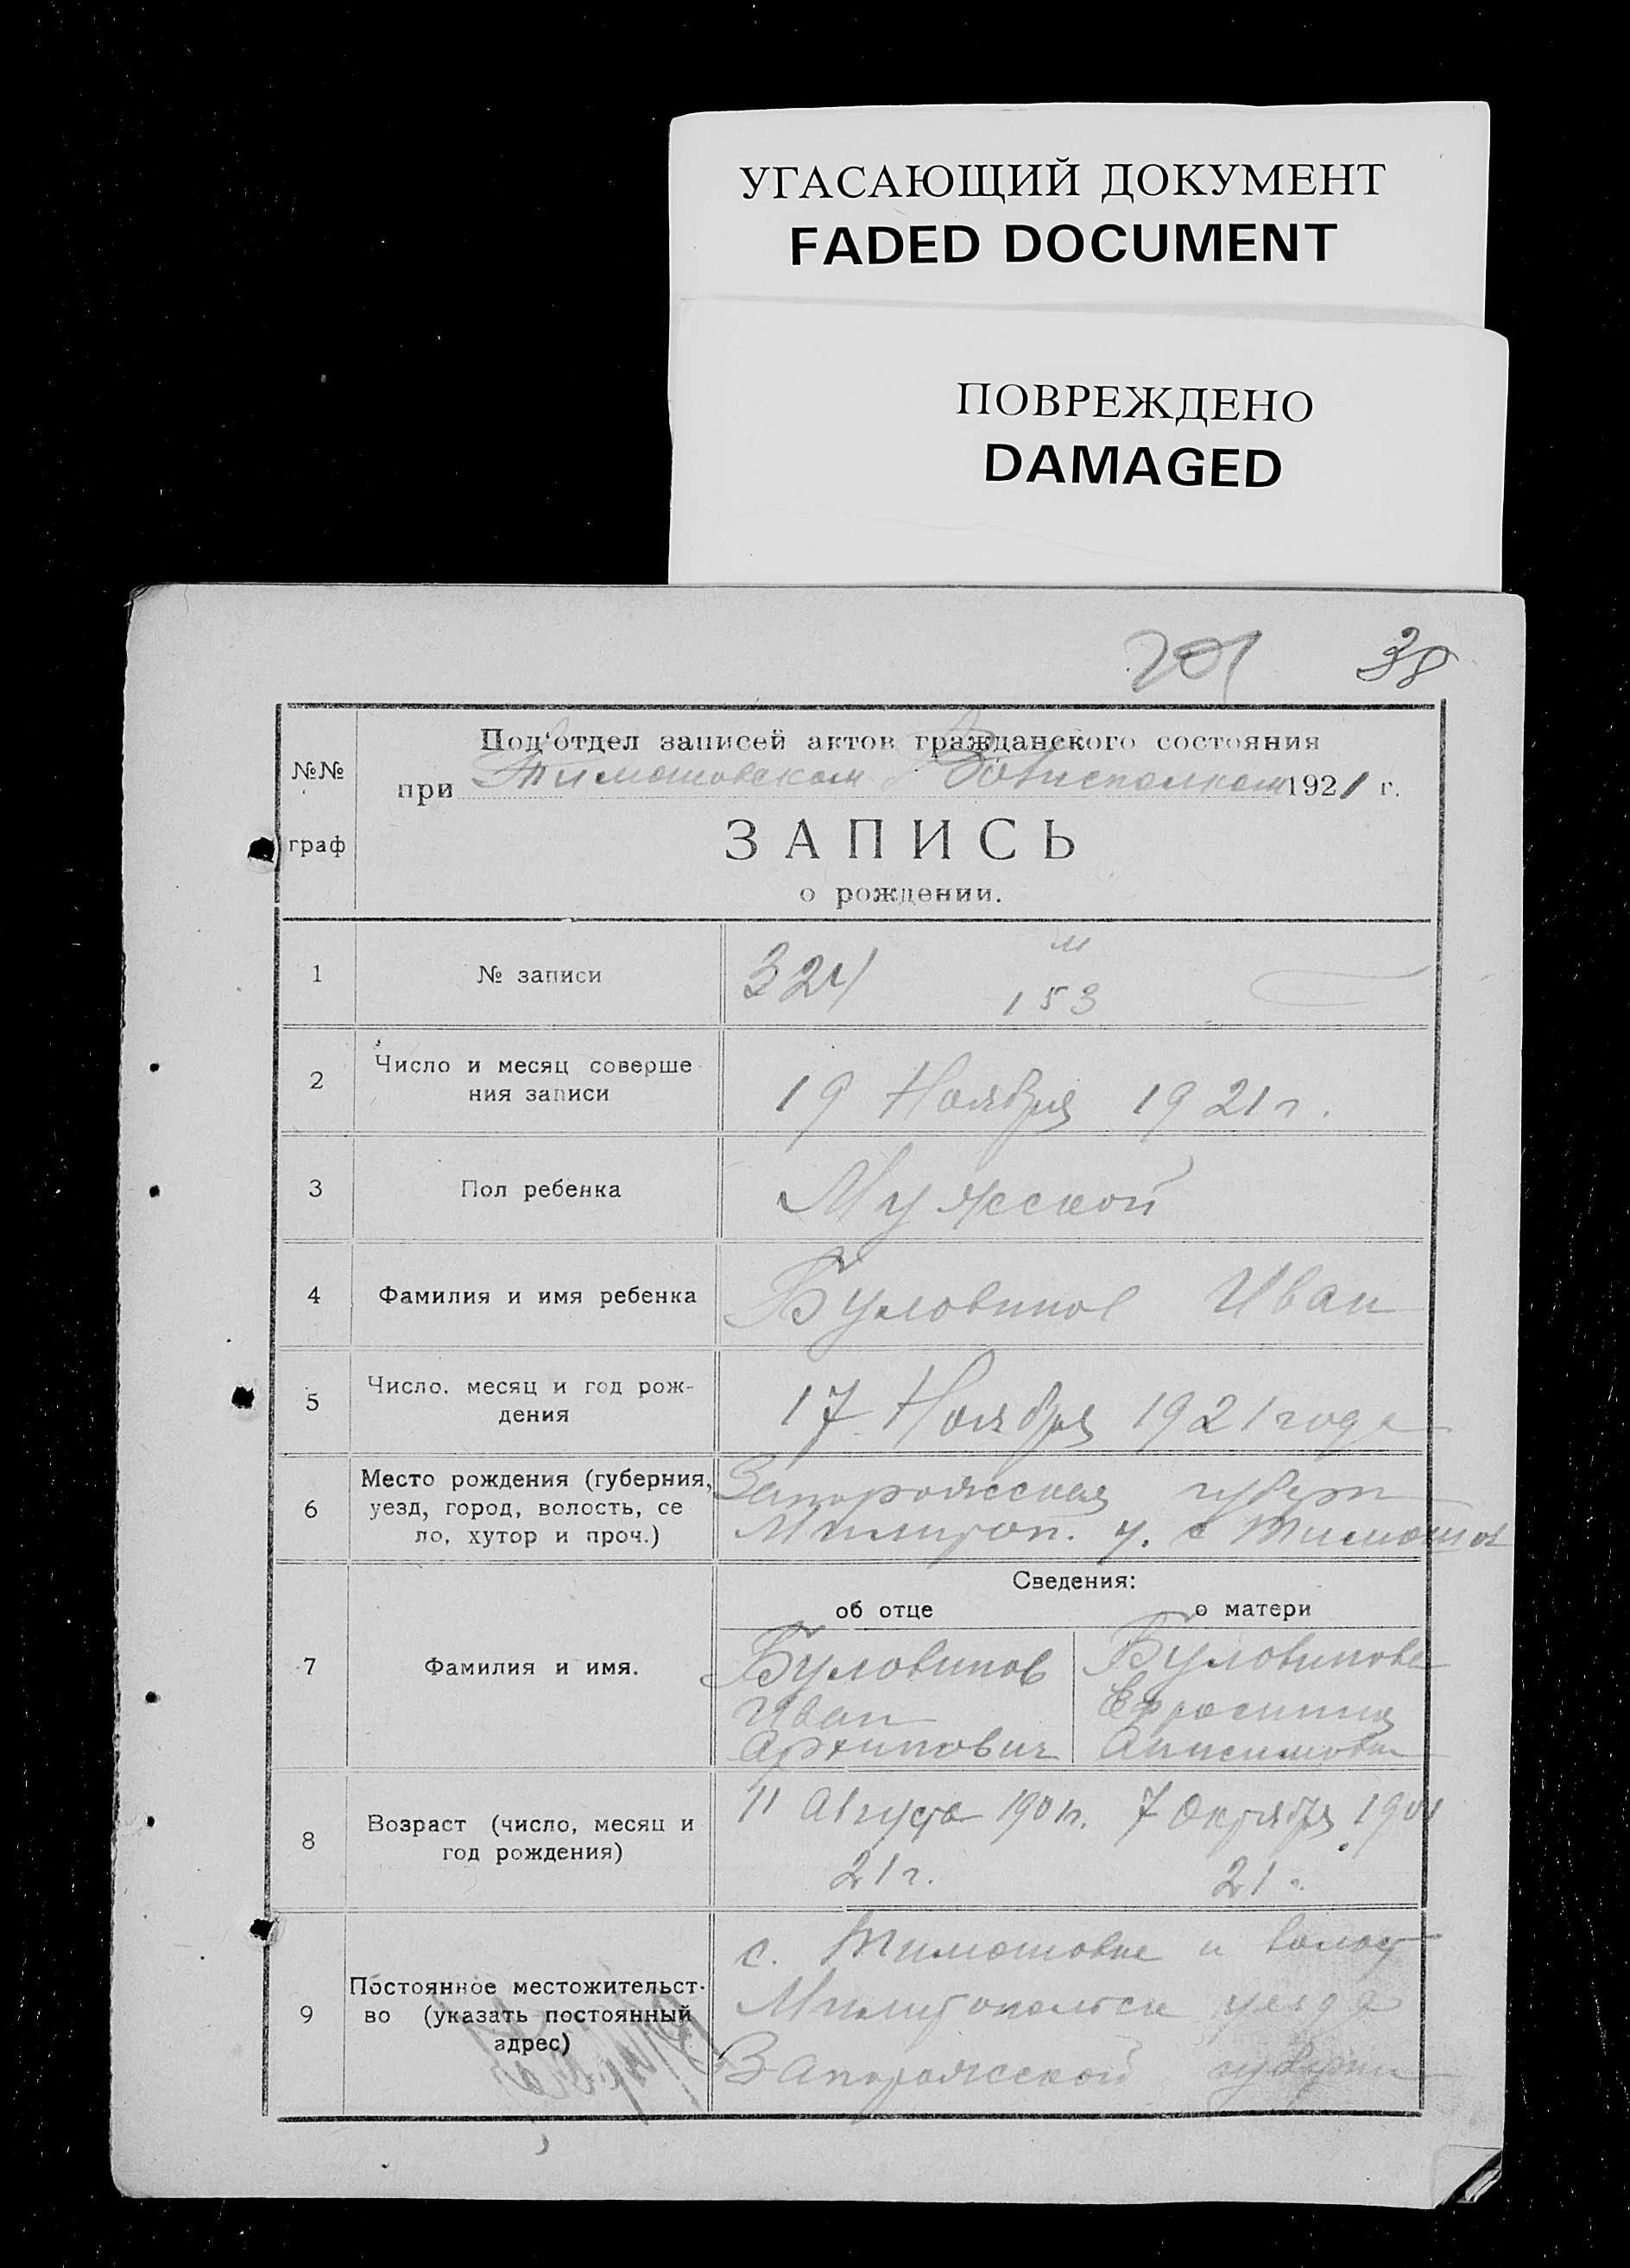 УГАСАЮЩИЙ ДОКУМЕНТ
FADED DOCUMENT
ПОВРЕЖДЕНО
DAMAGED
201 38
№№
граф
Под‘отдел записей актов гражданского состояния
при Тимошовском Волисполком 1921 г.
ЗАПИСЬ
о рождении.
1 № записи 324 м
153
2 Число и месяц соверше
ния записи
19 Ноября 1921 г.
3 Пол ребенка Мужской
4 Фамилия и имя ребенка Буловинов Иван
5 Число. месяц и год рож-
дения
17 Ноября 1921 года
6 Место рождения (губерния,
уезд, город, волость, се
ло, хутор и проч.)
Запорожская губерн
Милитоп. у. с Тимошов
Сведения:
об отце о матери
7 Фамилия и имя.
Буловинов
Иван
Архипович
Буловинова
Ефросиния
Анисимовн
8 Возраст (число, месяц и
год рождения)
11 Августа 1901 г.
21 г.
7 Октября 1901
21 г.
9 Постоянное местожительст-
во (указать постоянный
адрес)
с. Тимошовке и волост
Милитопольск уезда
Запорожской губерни